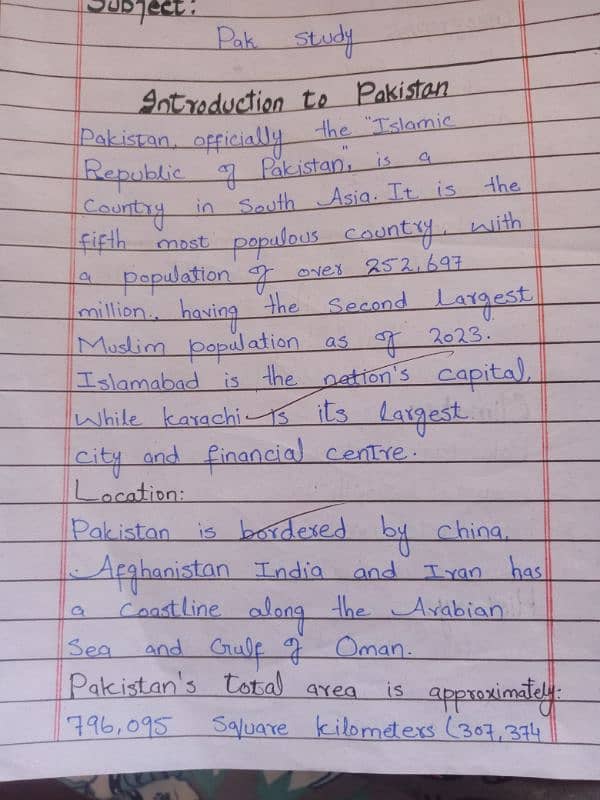 Subject:
Pak study
Introduction to Pakistan
Pakistan, officially the "Islamic
Republic of Pakistan", is a
Country in South Asia. It is the
fifth most populous country, with
a population of over 252,697
million., having the Second Largest
Muslim population as of 2023.
Islamabad is the nation's capital,
While Karachi is its Largest
city and financial centre.
Location:
Pakistan is bordered by China,
Afghanistan India and Iran has
a Coastline along the Arabian
Sea and Gulf of Oman.
Pakistan's total area is approximately:
796,095 Square kilometers (307,374